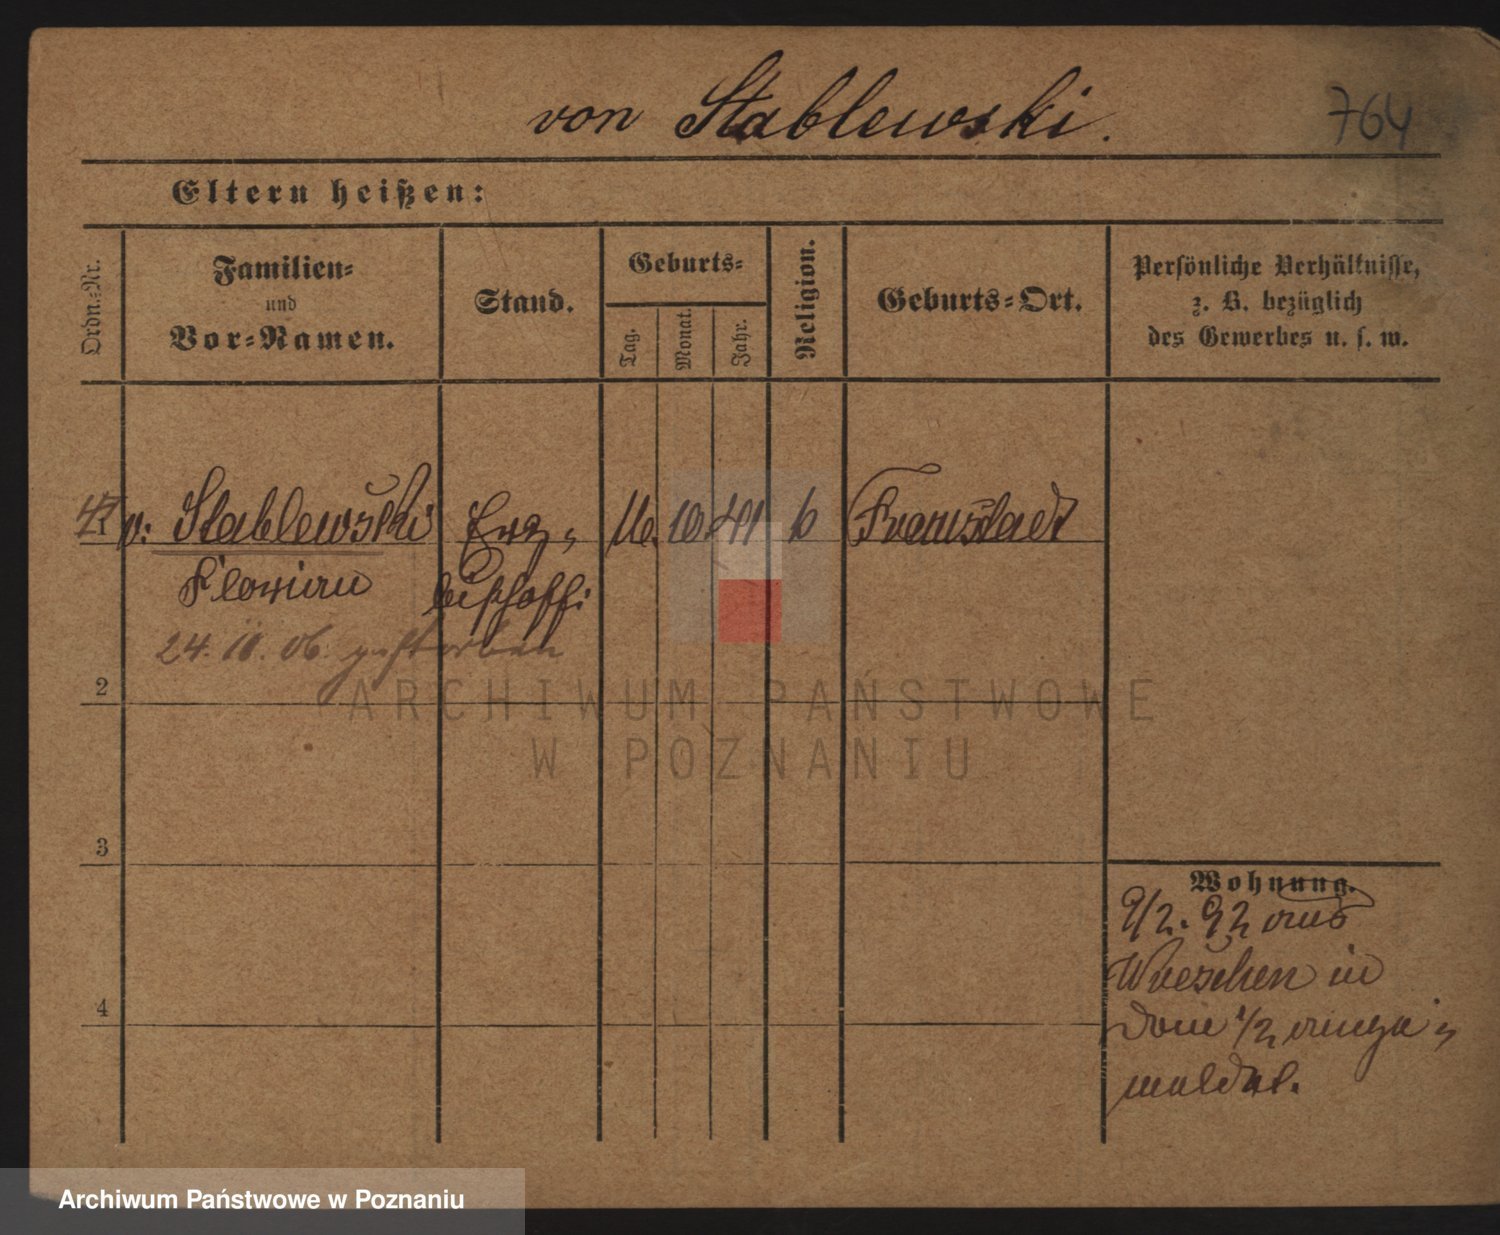 von Stablewski.
764
Eltern heißen:
Ordn.-Nr.
Familien-
und
Vor-Namen.
Stand.
Geburts-
Tag.
Monat.
Jahr.
Religion.
Geburts-Ort.
Persönliche Verhältnisse,
z. B. bezüglich
des Gewerbes u. s. w.
1 v. Stablewski Erz- 16. 10. 41 k Fraustadt
Florian bischoff
24. 11. 06. gestorben
2
3
4
Wohnung.
9/2. 92 aus
Wreschen in
Dom 1/2 ange-
meldet.
ARCHIWUM PAŃSTWOWE
W POZNANIU
Archiwum Państwowe w Poznaniu